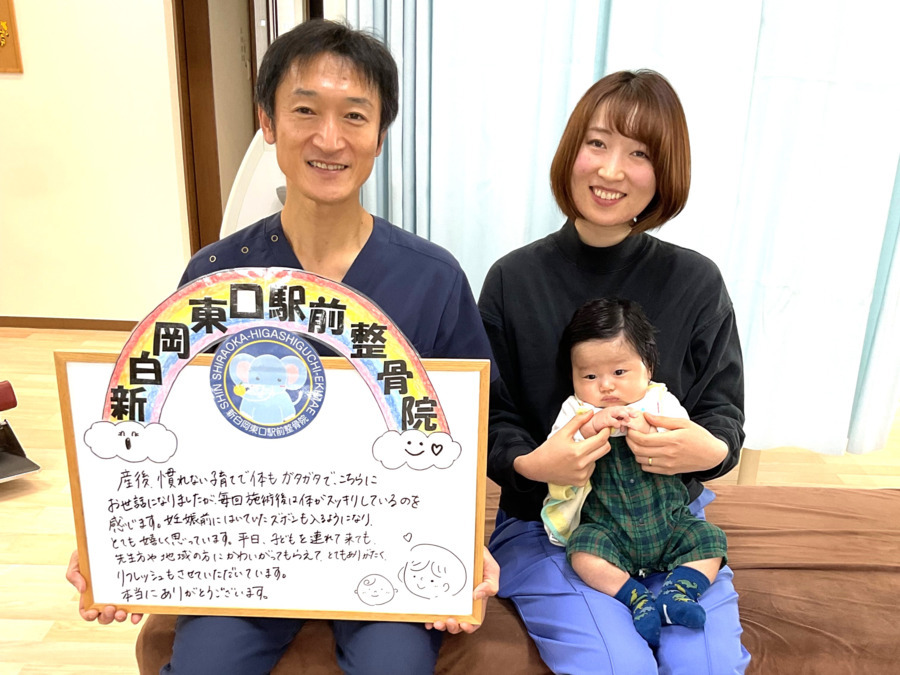 新白岡東口駅前整骨院
SHIN SHIRAOKA-HIGASHIGUCHI-EKIMAE
新白岡東口駅前整骨院
産後、慣れない子育てで体もガタガタで、こちらに
お世話になりましたが、毎回施術後は体がスッキリしているのを
感じます。妊娠前にはいていたズボンも入るようになり、
とても嬉しく思っています。平日、子どもを連れて来ても、
先生方や地域の方にかわいがってもらえて、とてもありがたく、
リフレッシュもさせていただいています。
本当にありがとうございます。